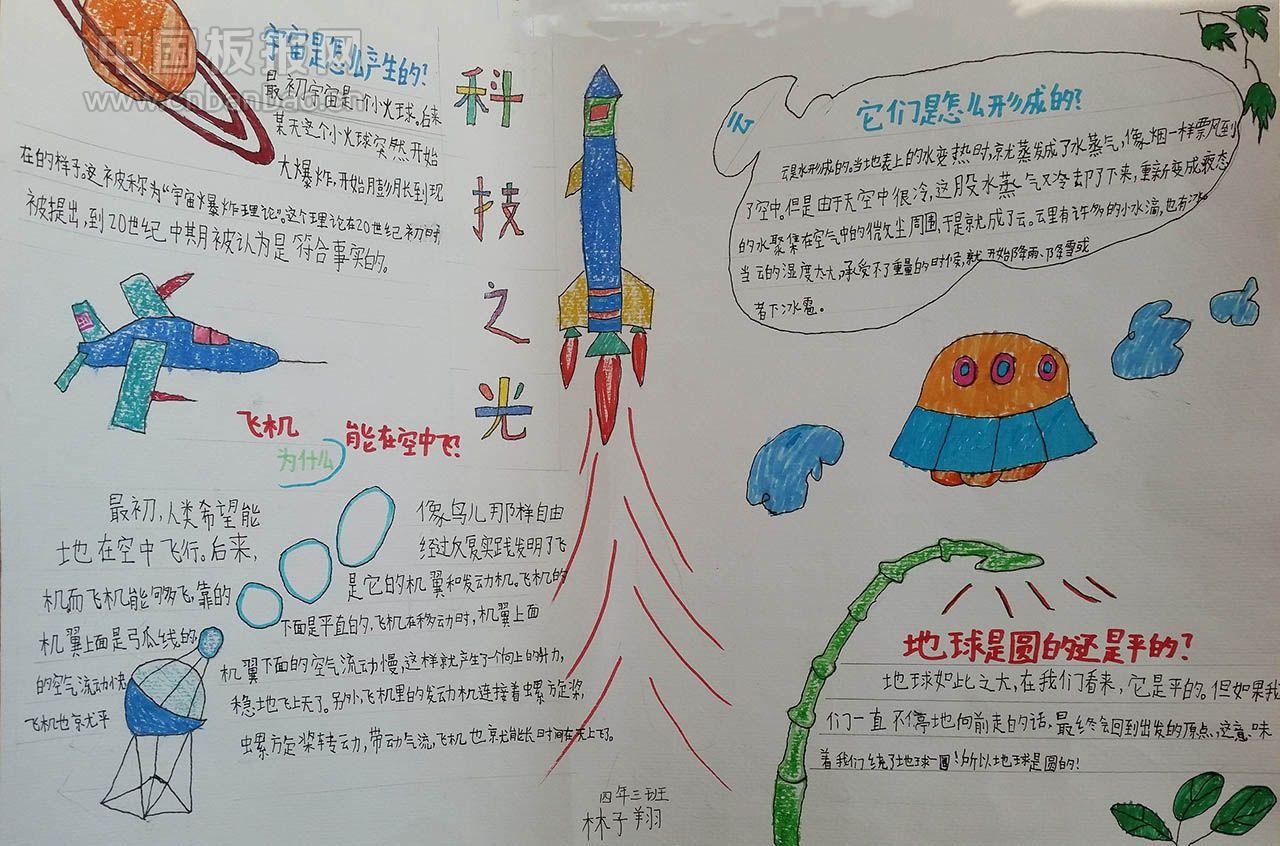 中国板报网
www.cnbanbao.cn
宇宙是怎么产生的?
最初宇宙是一个小火球。后来
某天这个小火球突然开始
大爆炸,开始膨胀到现
在的样子。这被称为“宇宙爆炸理论”。这个理论在20世纪初时
被提出,到20世纪中其月被认为是符合事实的。
科技之光
飞机
为什么
能在空中飞?
最初,人类希望能 像鸟儿那样自由
地在空中飞行。后来, 经过反复实践发明了飞
机而飞机能够飞,靠的 是它的机翼和发动机。飞机的
机翼上面是弓瓜线的 下面是平直的,飞机在移动时,机翼上面
的空气流动快 机翼下面的空气流动慢,这样就产生了个向上的升力,
飞机也就平 稳地飞上天了。另外,飞机里的发动机连接着螺旋桨,
螺旋桨转动,带动气流,飞机也就能长时间在天上飞了。
云
它们是怎么形成的?
云是水形成的。当地表上的水变热时,就蒸发成了水蒸气,像烟一样票风到
了空中。但是由于天空中很冷,这股水蒸气又冷却了下来,重新变成液态
的水聚集在空气中的微尘周围,于是就成了云。云里有许多的小水滴,也有冰
当云的湿度太大,承受不了重量的时候,就开始降雨、降雪或
者下冰雹。
地球是圆的还是平的?
地球如此之大,在我们看来,它是平的。但如果我
们一直不停地向前走的话,最终会回到出发的原点,这意味
着我们绕了地球一圈!所以地球是圆的!
四年三班
林子翔